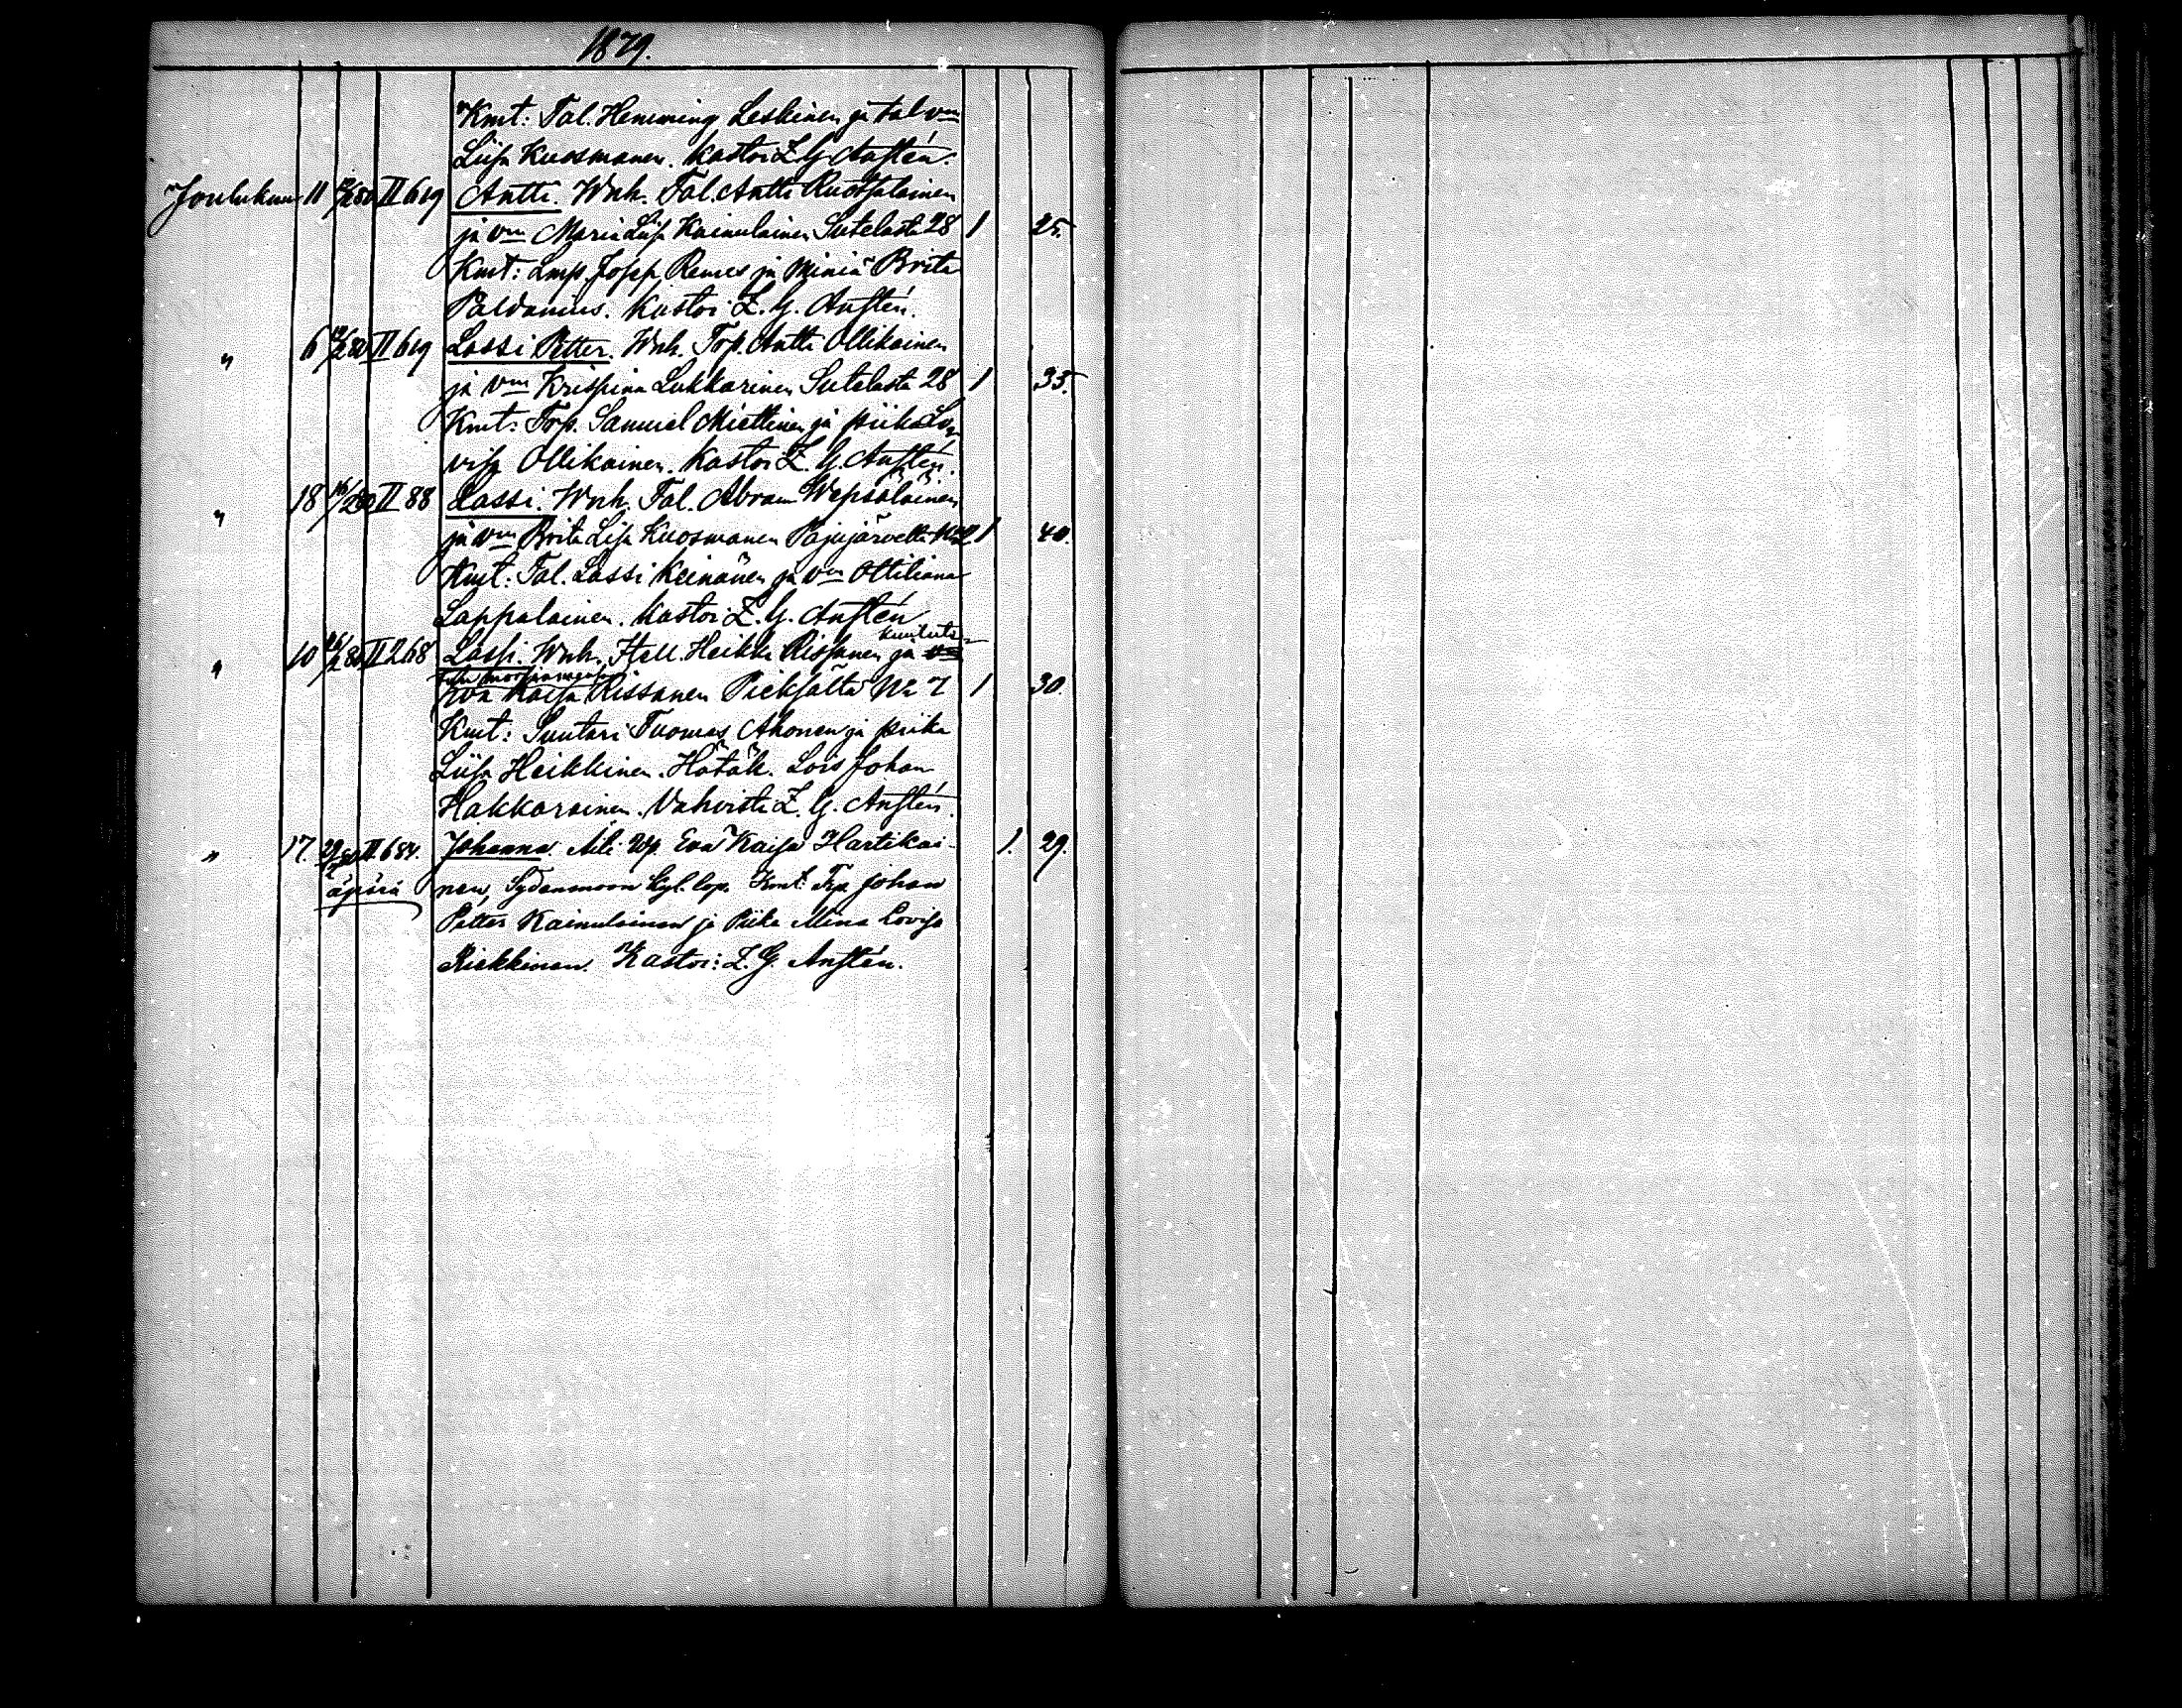 1879.
Kmt: Tal. Hemming Leskinen ja tal vm
Liisa Kuosmanen. Kastoi Z G Anstén.
Joulukuu 11 /2 80 II 619 Antti. Wnh. Tal. Antti Ruotsalainen
ja vm Maria Liisa Kainulainen Sutelasta 28 1 25.
Kmt: Lmp. Jopp Remes ja Miniä Brita
Paldanius. Kastoi Z. G. Ansten.
" 6 /2 80 II 619 Lassi Petter. Wnh. Torp. Antti Ollikainen
ja vm Krispina Lukkarinen Sutelasta 28 1 35.
Kmt: Torp. Samuel Miettinen ja piika Lo-
visa Ollikainen. Kastoi Z. G. Ansten.
" 18 16/2 80 II 88 Lassi. Wnh. Tal. Abram Wepsäläinen
ja vm Brita Lisa Kuosmanen Pajujärveltä 1 40.
Kmt: Tal. Lassi Keinänen ja vm Ottiliana
Lappalainen. Kastoi Z. G. Ansten
" 10 16/2 80 II 268 Lassi. Wnh. Itell. Heikki Rissanen ja vm kuulute-
Kaisa Rissanen Pieksältä No 7 1 30.
Kmt: Suutari Tuomas Ahonen ja piika
Liisa Heikkinen. Hätäk. Lois Johan
Hakkarainen. Vahvisti Z. G. Ansten.
" 17. 29/ 80 II 684. Johanna. Äiti Wp. Eva Kaisa Hartikai- 1. 29.
äpärä nen, Sydänmaan kyl. lop. Kmt: Trp. Johan
Petter Kainulainen ja Piika Mina Lovisa
Riekkinen. Kastoi: Z. G. Ansten.